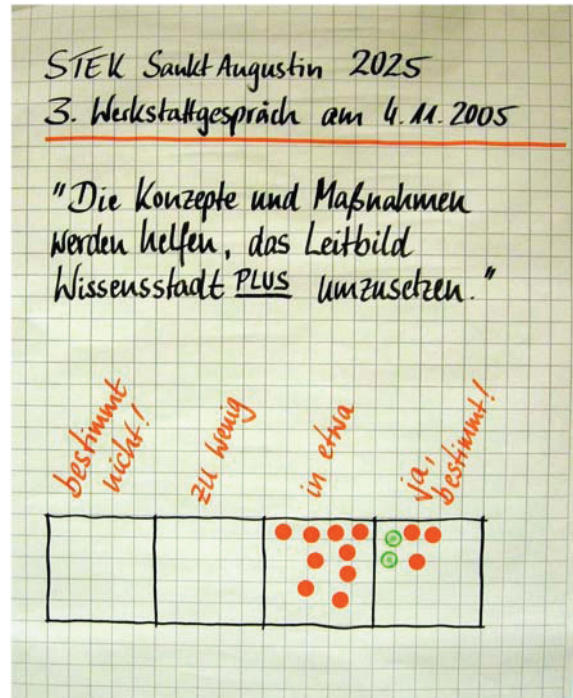 STEK Sankt Augustin 2025
3. Werkstattgespräch am 4.11.2005
"Die Konzepte und Maßnahmen
werden helfen, das Leitbild
Wissensstadt PLUS umzusetzen."
bestimmt
nicht!
zu wenig
in etwa
ja,
bestimmt!